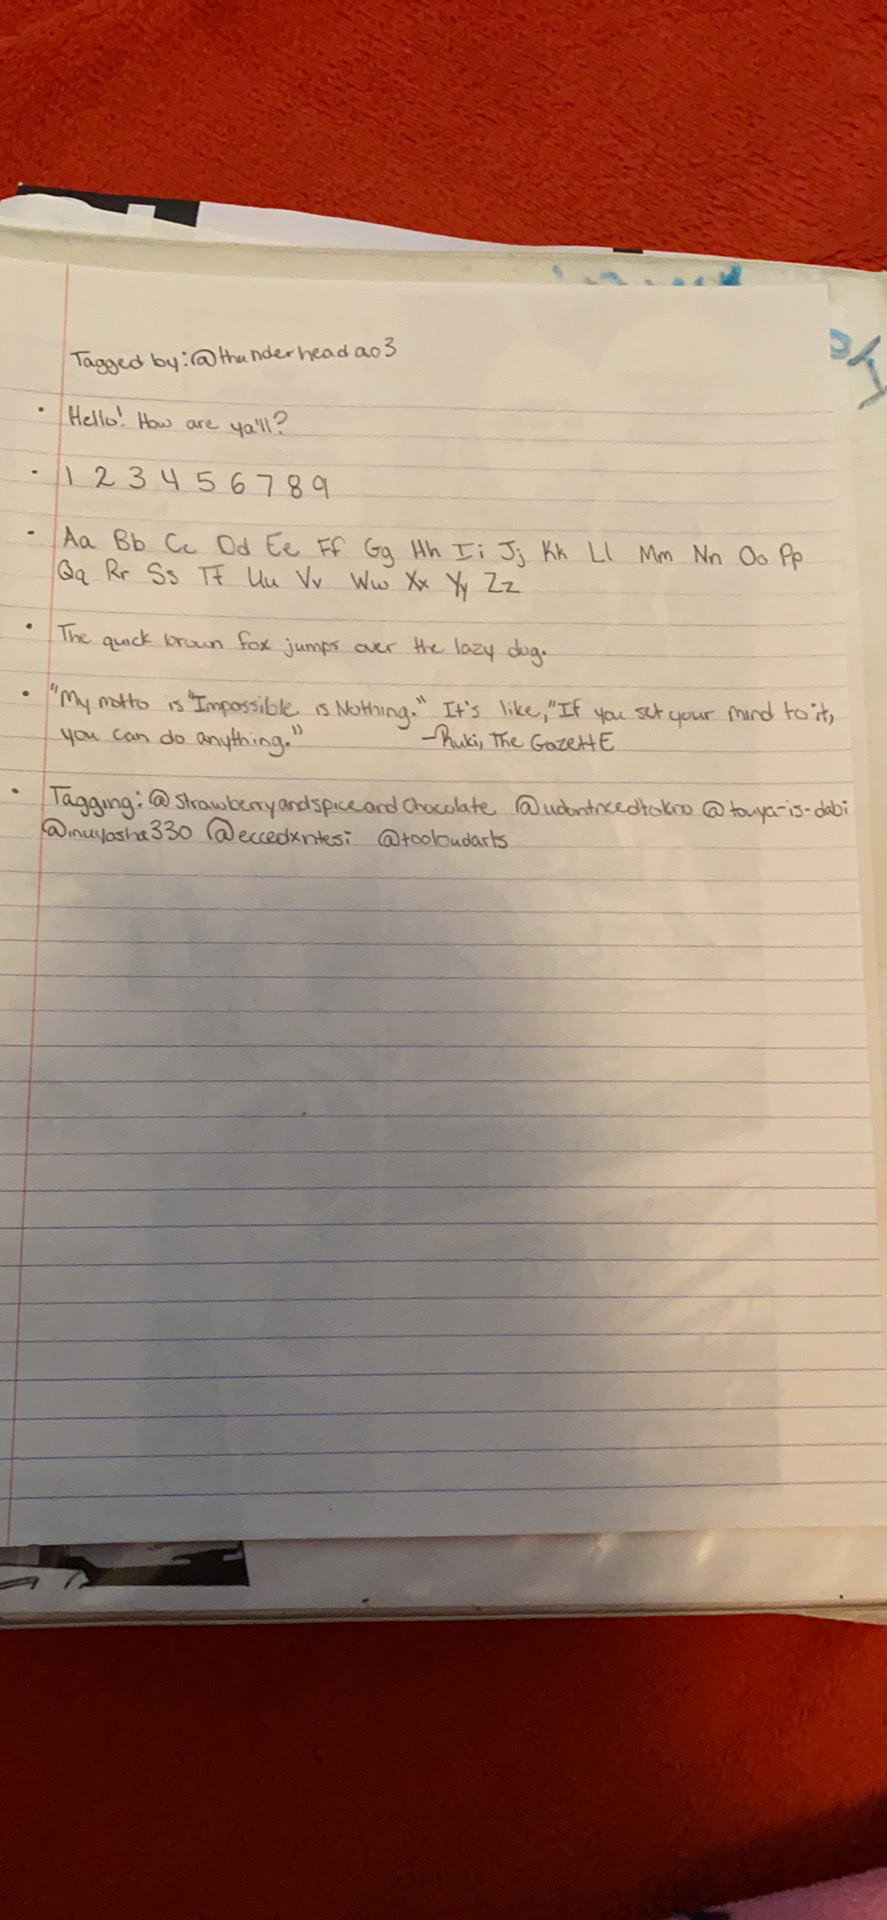 Tagged by: @thunderheadao3
• Hello! How are ya'll?
• 1 2 3 4 5 6 7 8 9
• Aa Bb Cc Dd Ee Ff Gg Hh Ii Jj Kk Ll Mm Nn Oo Pp
Qq Rr Ss Tt Uu Vv Ww Xx Yy Zz
• The quick brown fox jumps over the lazy dog.
• "My motto is "Impossible is Nothing." It's like, "If you set your mind to it,
you can do anything." -Ruki, The GazettE
• Tagging: @strawberryandspiceandchocolate @udontneedtokno @touya-is-dabi
@inuyasha330 @eccedxntesi @tooloudarts